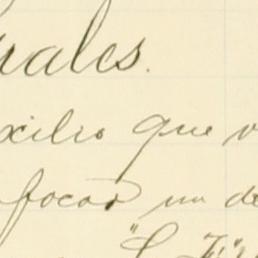 rales.
xilio que v
focar un de
"L. F."